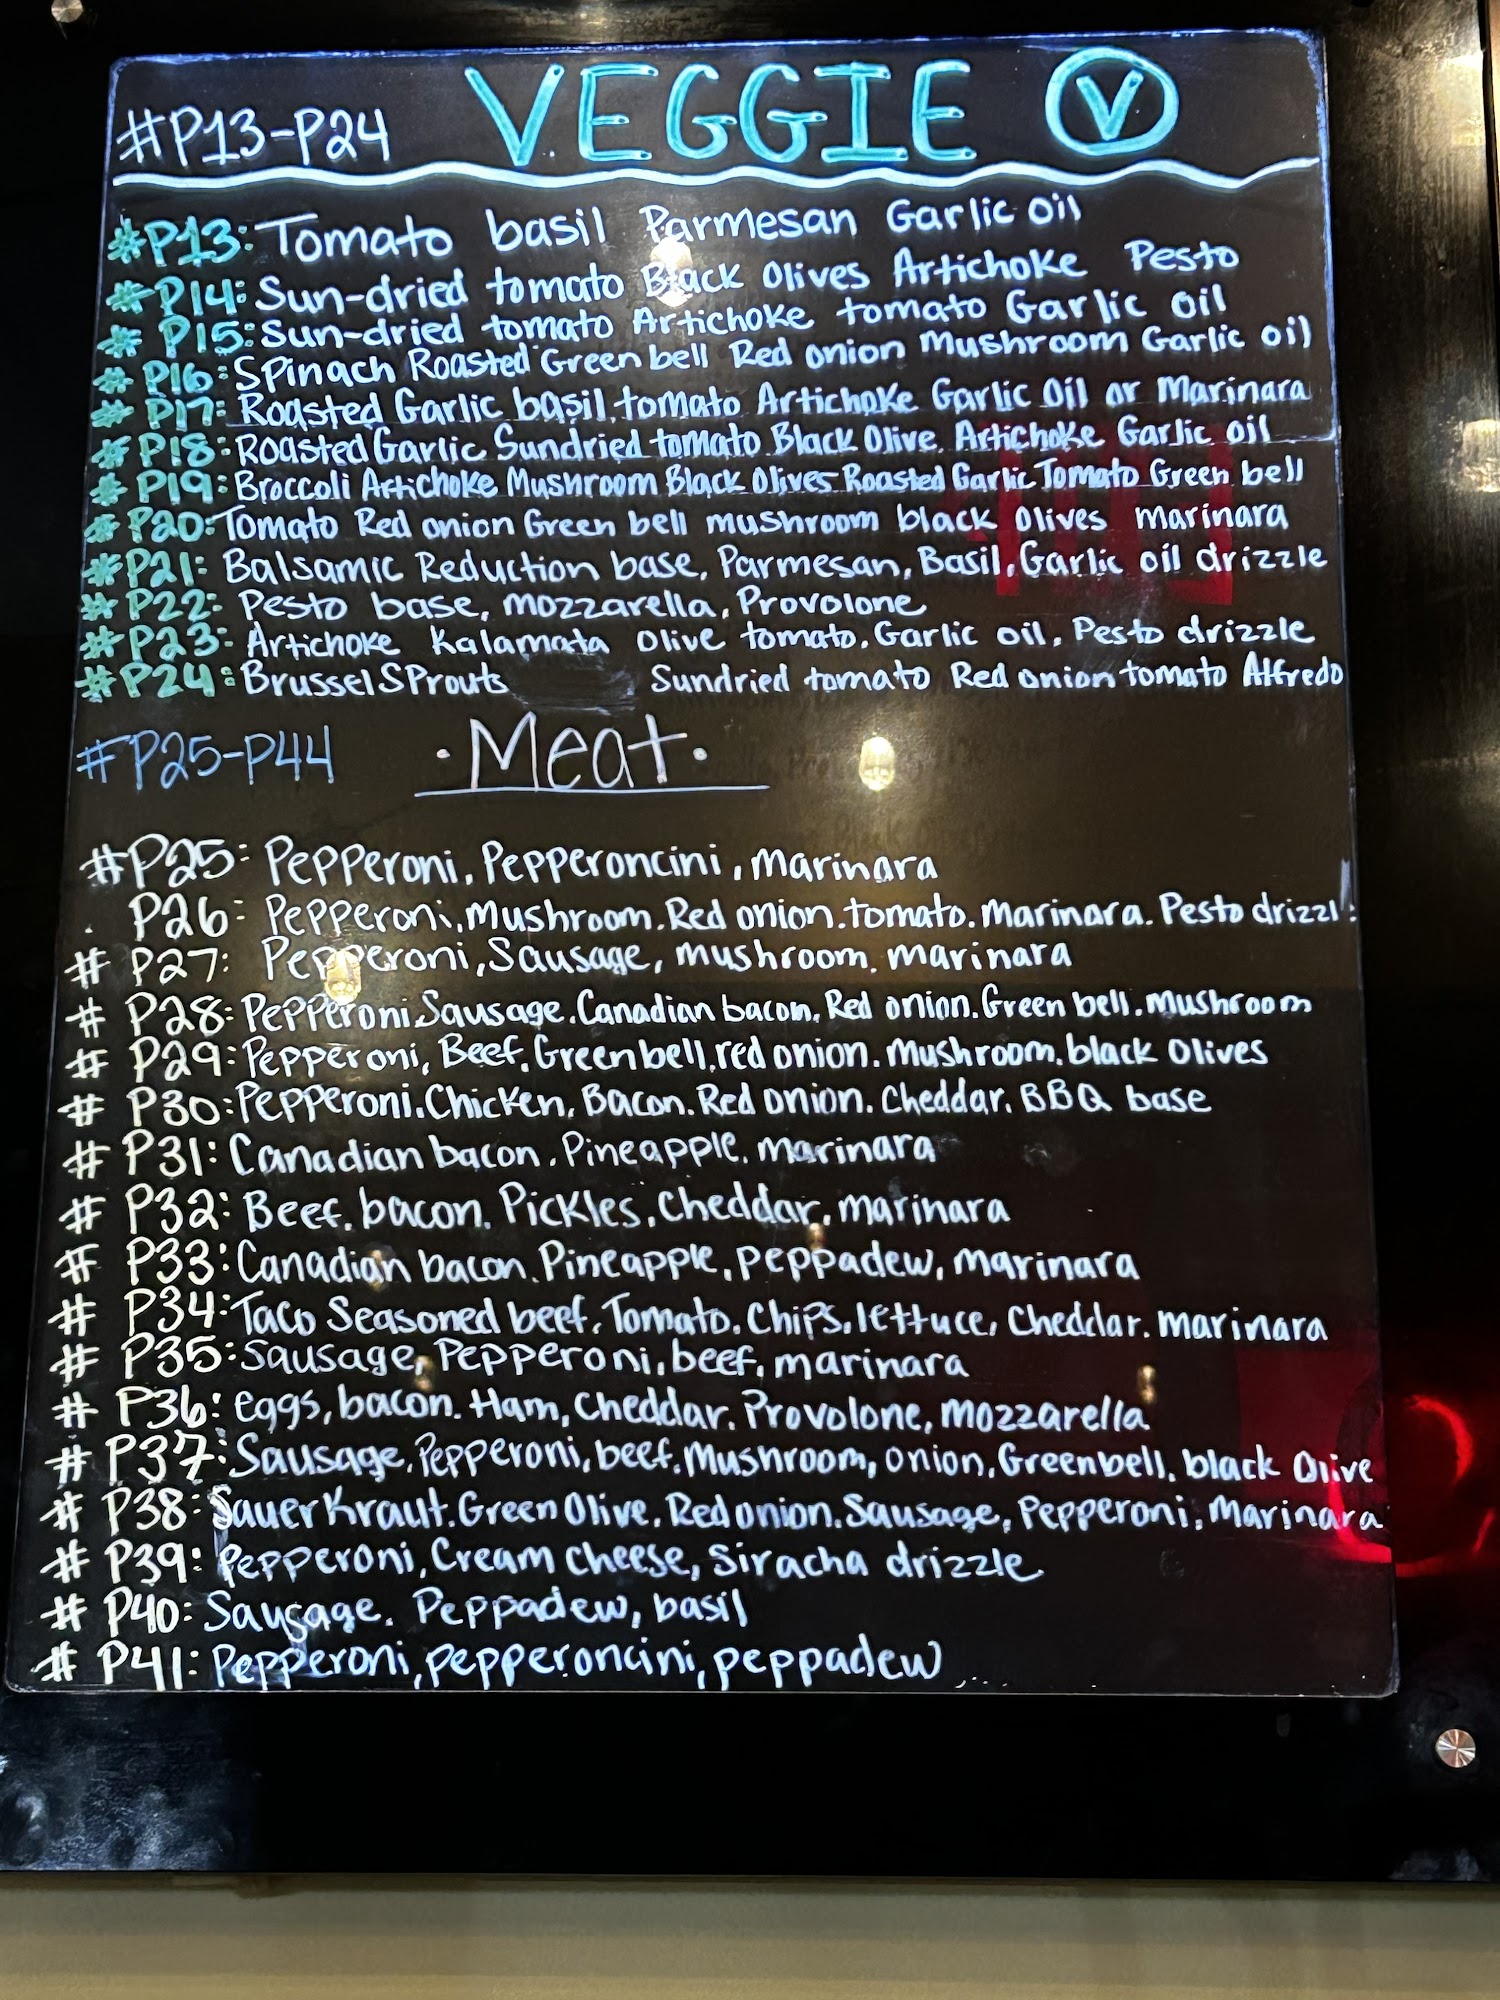 #P13-P24 VEGGIE V
#P13: Tomato basil Parmesan Garlic oil
#P14: Sun-dried tomato Black Olives Artichoke Pesto
# P15: Sun-dried tomato Artichoke tomato Garlic oil
# P16: Spinach Roasted Green bell Red onion Mushroom Garlic oil
# P17: Roasted Garlic basil, tomato Artichoke Garlic Oil or Marinara
# P18: Roasted Garlic Sundried tomato Black Olive, Artichoke Garlic oil
# P19: Broccoli Artichoke Mushroom Black Olives Roasted Garlic Tomato Green bell
#P20: Tomato Red onion Green bell mushroom black olives marinara
#P21: Balsamic Reduction base, Parmesan, Basil, Garlic oil drizzle
#P22: Pesto base, mozzarella, Provolone
#P23: Artichoke Kalamata olive tomato, Garlic oil, Pesto drizzle
#P24: Brussel Sprouts Sundried tomato Red onion tomato Alfredo
#P25-P44 ·Meat·
#P25: Pepperoni, Pepperoncini, marinara
P26: Pepperoni, Mushroom, Red onion, tomato, Marinara, Pesto drizzl
# P27: Pepperoni, Sausage, mushroom, marinara
# P28: Pepperoni, Sausage, Canadian bacon, Red onion, Green bell, Mushroom
# P29: Pepperoni, Beef, Green bell, red onion, Mushroom, black olives
# P30: Pepperoni, Chicken, Bacon, Red onion, Cheddar, BBQ base
# P31: Canadian bacon, Pineapple, marinara
# P32: Beef, bacon, Pickles, Cheddar, marinara
# P33: Canadian bacon, Pineapple, peppadew, marinara
# P34: Taco Seasoned beef, Tomato, Chips, lettuce, Cheddar, marinara
# P35: Sausage, Pepperoni, beef, marinara
# P36: eggs, bacon, Ham, Cheddar, Provolone, Mozzarella
# P37: Sausage, Pepperoni, beef, Mushroom, onion, Green bell, black Olive
# P38: SauerKraut, Green Olive, Red onion, Sausage, Pepperoni, Marinara
# P39: Pepperoni, Cream cheese, Siracha drizzle
# P40: Sausage, Peppadew, basil
# P41: Pepperoni, pepperoncini, peppadew